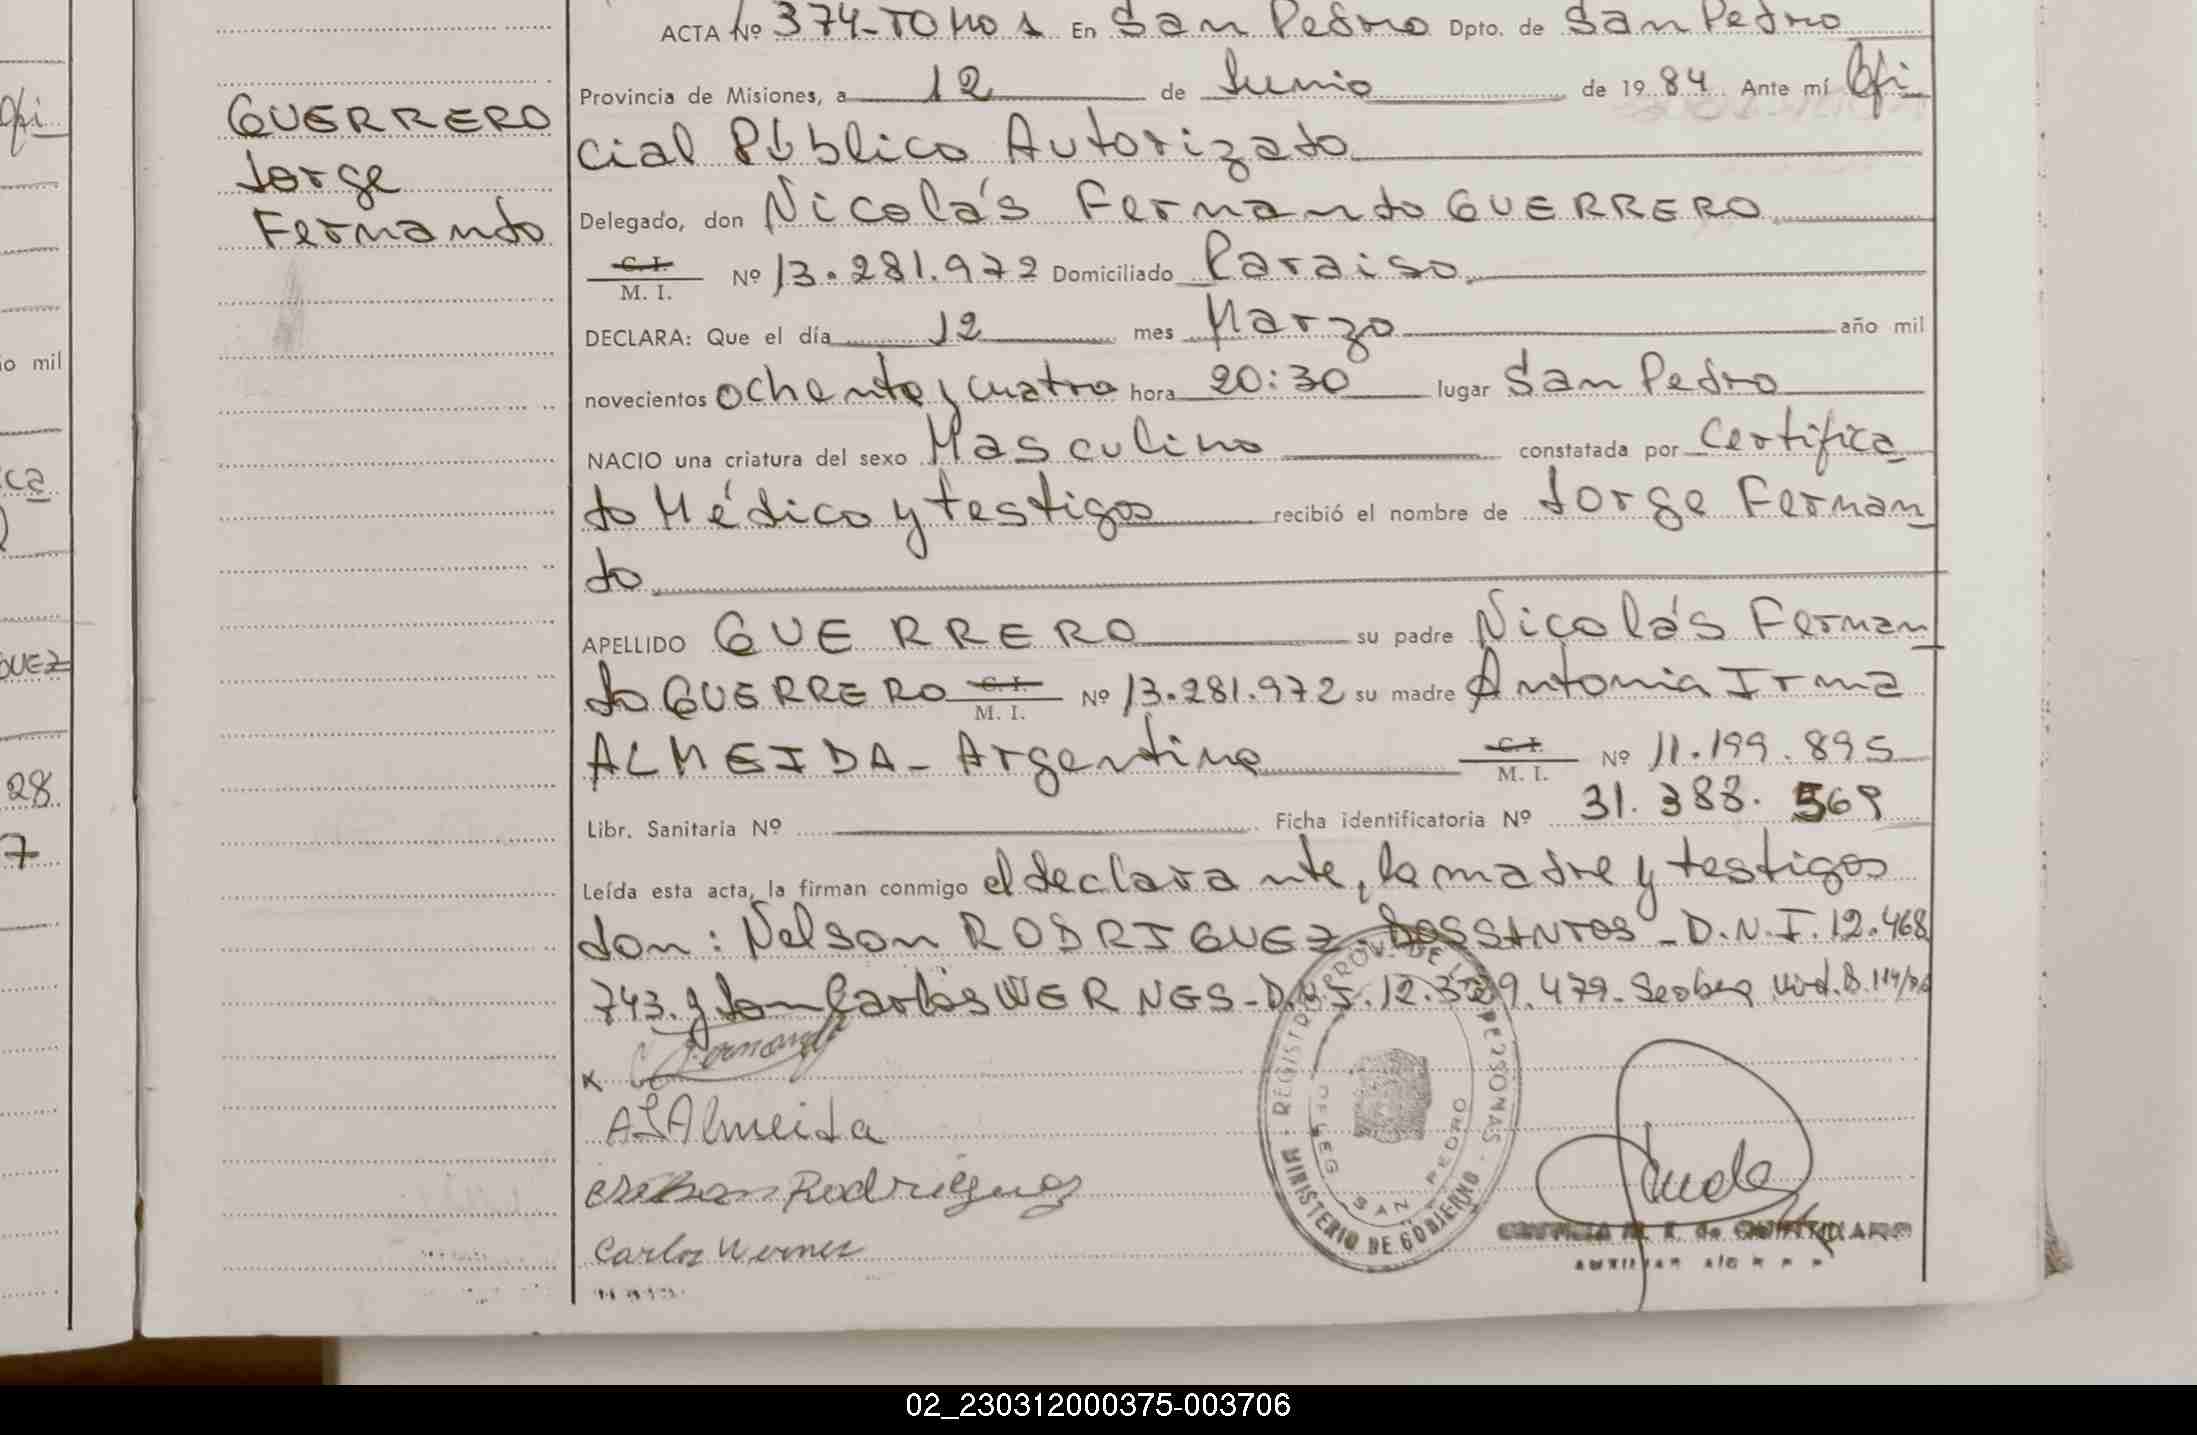 ACTA Nº 374-TOMO 1 En San Pedro Dpto. de San Pedro
Provincia de Misiones, a 12 de Junio de 1984 Ante mí Ofi
cial Público Autorizado
GUERRERO
Jorge
Fernando
Delegado, don Nicolás Fernando GUERRERO
C. I.
M. I. Nº 13.281.972 Domiciliado Paraiso
DECLARA: Que el día 12 mes Marzo año mil
novecientos ochenta y cuatro hora 20:30 lugar San Pedro
NACIO una criatura del sexo Masculino constatada por Certifica
do Médico y testigos recibió el nombre de Jorge Fernan
do
APELLIDO GUERRERO su padre Nicolás Fernan
do GUERRERO C. I. M. I. Nº 13.281.972 su madre Antonia Irma
ALMEIDA - Argentina C. I. M. I. Nº 11.199.895
Libr. Sanitaria Nº Ficha identificatoria Nº 31.388.569
Leída esta acta, la firman conmigo el declarante, la madre y testigos
don: Nelson RODRIGUEZ DOSSANTOS - D.N.I. 12.468
743. y don Carlos WERNES - D.N.I. 12.329.479.
x Fernando
A I Almeida
Rodriguez
Carlos Wernes
REGISTRO PROV. DE LAS PERSONAS
MINISTERIO DE GOBIERNO
DELEG SAN PEDRO
Ofi
io mil
ca
GUEZ
28
7
02_230312000375-003706